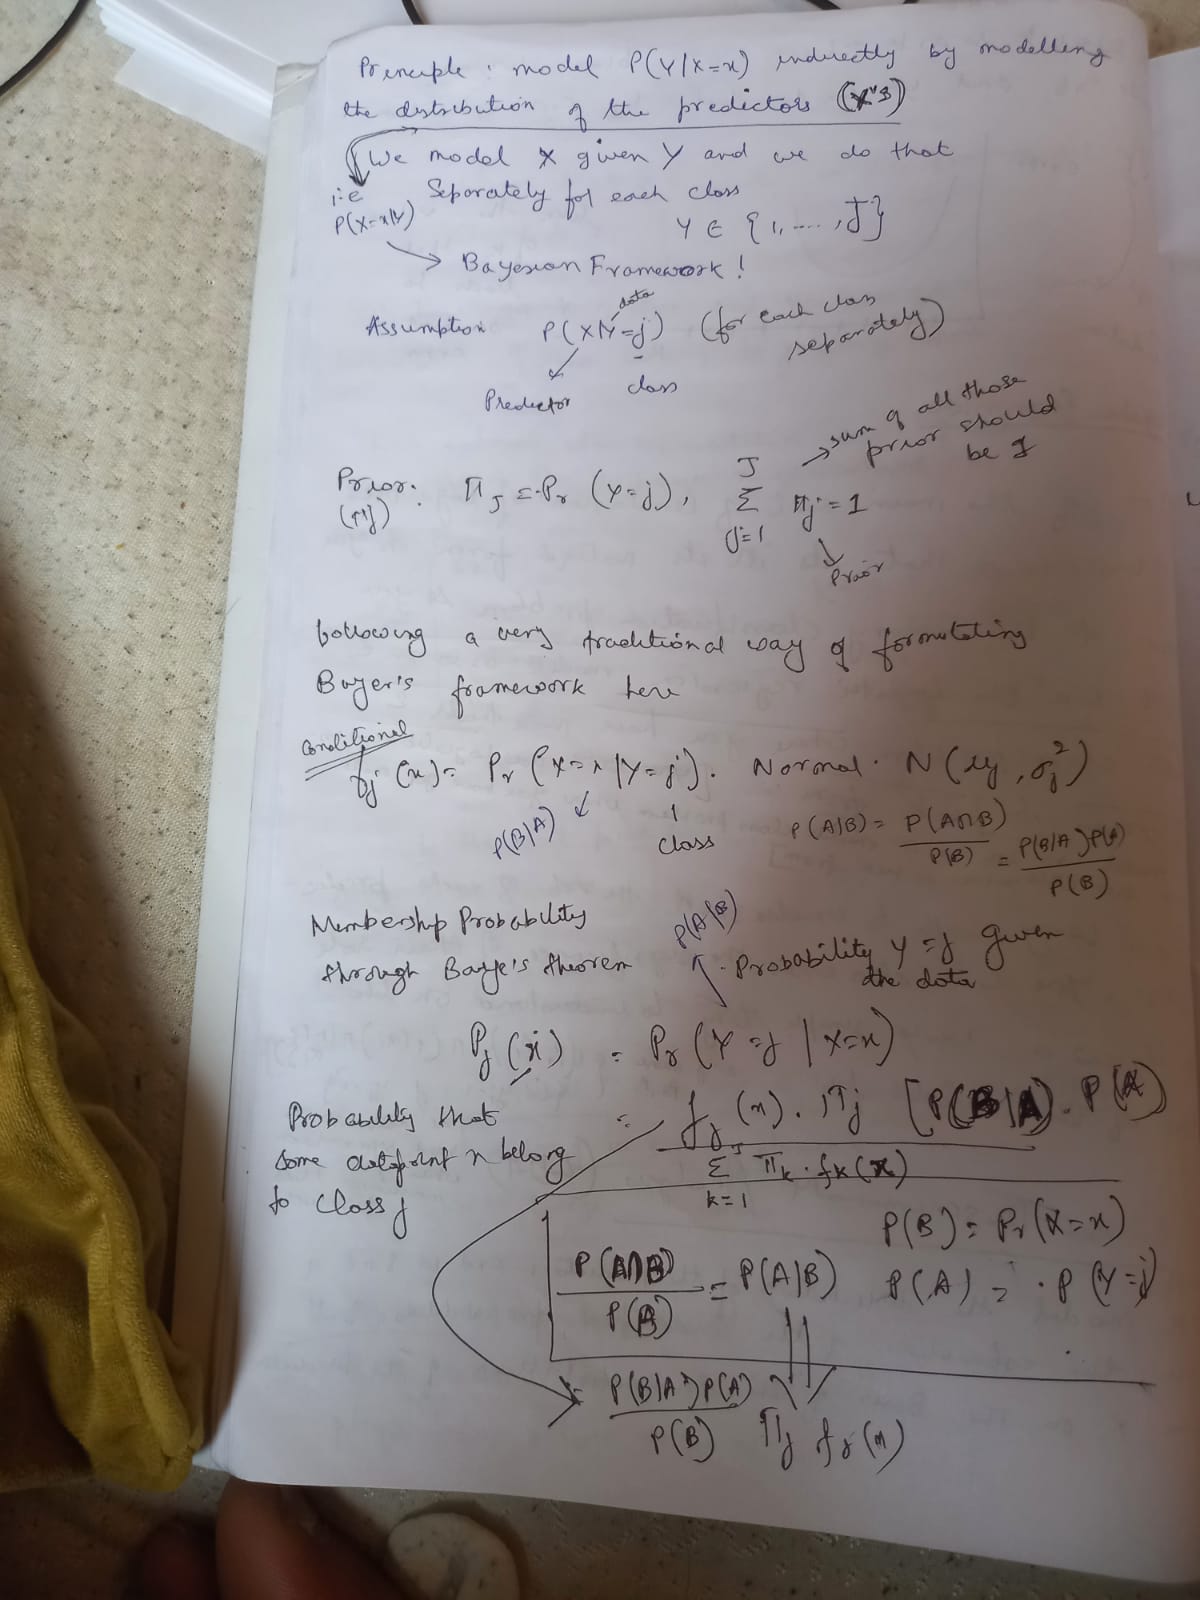 Principle : model P(Y/X=x) indirectly by modelling
the distribution of the predictors (X's)
We model X given Y and we do that
Separately for each class
i.e
P(X=x|Y)
Y ∈ {1, ..... , J}
Bayesian Framework !
data
Assumption P(X|Y=j) (for each class
separately)
Predictor class
→ sum of all those
prior should
be 1
Prior: Π_J = Pr (Y=j), Σ_{j=1}^{J} Π_j = 1
(Πj)
Prior
following a very traditional way of formulating
Bayer's framework here
Conditional
f_j (x) = Pr (X=x | Y=j). Normal. N(μ_j , σ_j^2)
P(B|A) class
P(A|B) = P(A∩B) / P(B) = P(B|A)P(A) / P(B)
Membership Probability P(A|B)
through Baye's theorem . Probability Y=j given
the data
P_j (x) = Pr (Y=j | X=x)
Probability that = f_j (x) . Π_j [P(B|A) . P(A)
some datapoint x belong Σ_{k=1}^{J} Π_k . f_k (x)
to Class j
P(B) = Pr (X=x)
P(A∩B) / P(B) = P(A|B) P(A) = . P(Y=j)
P(B|A)P(A) / P(B) Π_j f_j (x)